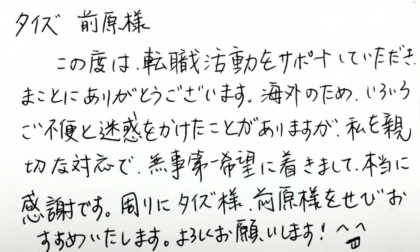 タイズ 前原様
この度は、転職活動をサポートしていただき、
まことにありがとうございます。海外のため、いろいろ
ご不便と迷惑をかけたことがありますが、私を親
切な対応で、無事第一希望に着きまして、本当に
感謝です。周りにタイズ様、前原様をぜひお
すすめいたします。よろしくお願いします! ^日^